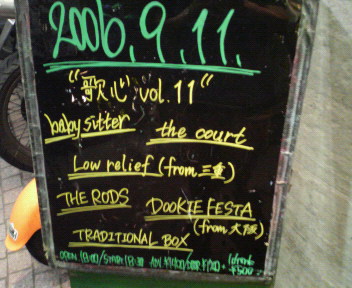 2006.9.11.
"歌心 vol.11"
babysitter the court
Low relief (from 三重)
THE RODS DOOKIE FESTA
(from 大阪)
TRADITIONAL BOX
OPEN 18:00/START 18:30
¥500